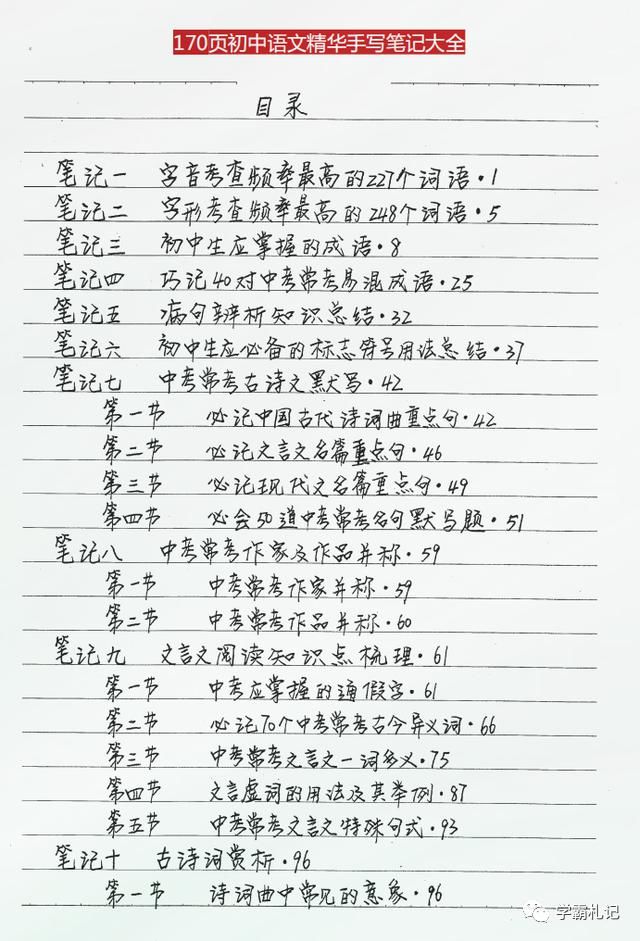 170页初中语文精华手写笔记大全
目录
笔记一 字音考查频率最高的227个词语·1
笔记二 字形考查频率最高的248个词语·5
笔记三 初中生应掌握的成语·8
笔记四 巧记40对中考常考易混成语·25
笔记五 病句辨析知识总结·32
笔记六 初中生应必备的标志符号用法总结·37
笔记七 中考常考古诗文默写·42
第一节 必记中国古代诗词曲重点句·42
第二节 必记文言文名篇重点句·46
第三节 必记现代文名篇重点句·49
第四节 必会50道中考常考名句默写题·51
笔记八 中考常考作家及作品并称·59
第一节 中考常考作家并称·59
第二节 中考常考作品并称·60
笔记九 文言文阅读知识点梳理·61
第一节 中考应掌握的通假字·61
第二节 必记70个中考常考古今异义词·66
第三节 中考常考文言文一词多义·75
第四节 文言虚词的用法及其举例·87
第五节 中考常考文言文特殊句式·93
笔记十 古诗词赏析·96
第一节 诗词曲中常见的意象·96
学霸札记